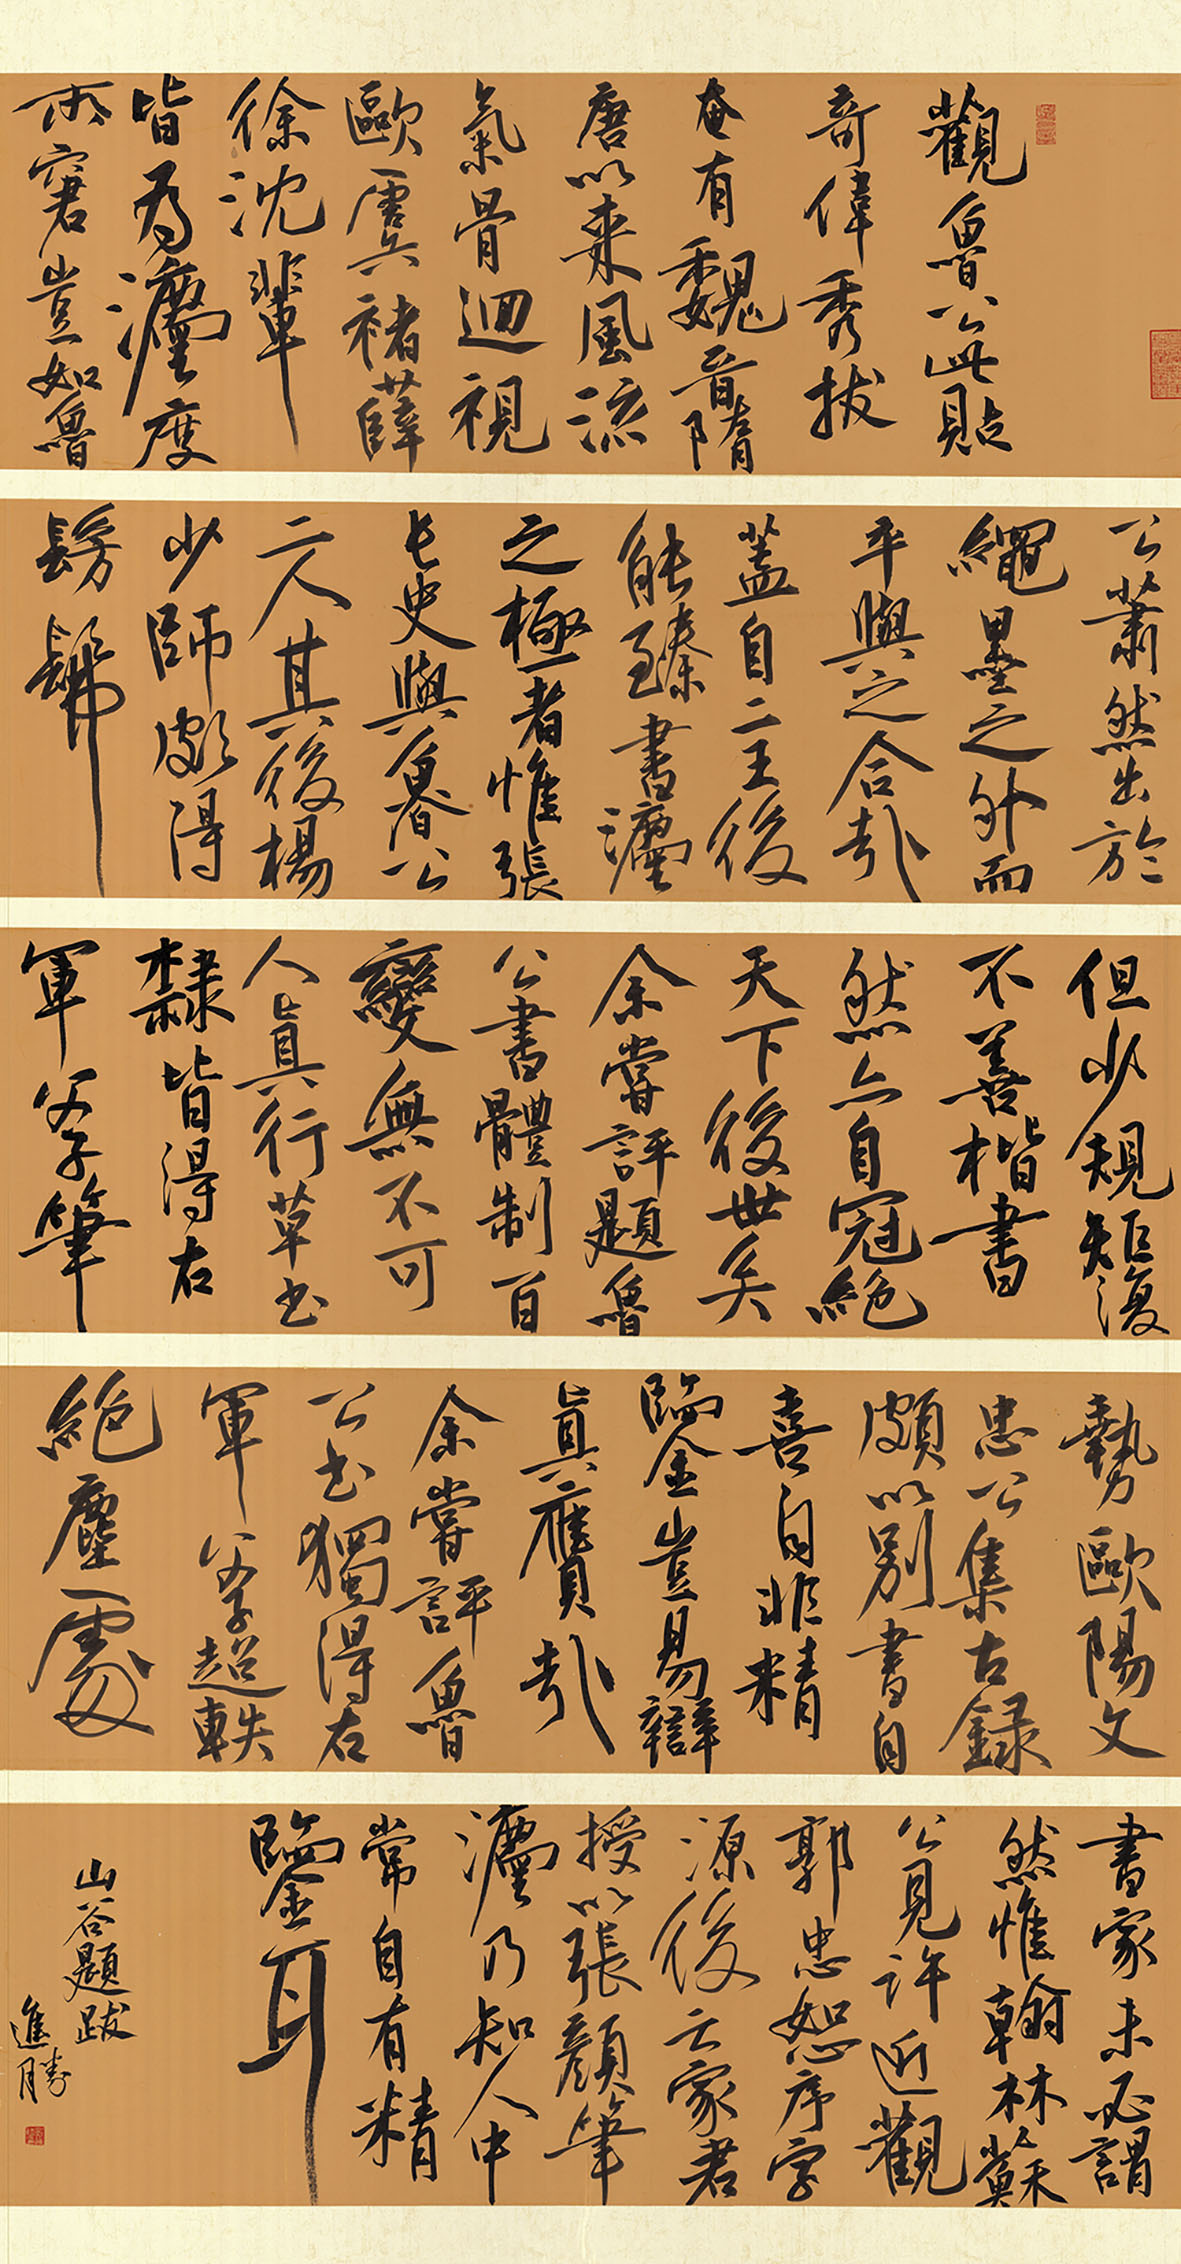 觀魯公此貼
奇偉秀拔
奄有魏晉隋
唐以來風流
氣骨迴視
歐虞褚薛
徐沈輩
皆為灋度
所窘豈如魯
公蕭然出於
繩墨之外而
卒與之合哉
蓋自二王後
能臻書灋
之極者惟張
長史與魯公
二人其後楊
少師頗得
髣髴
但少規矩復
不善楷書
然亦自冠絕
天下後世矣
余嘗評題魯
公書體制百
變無不可
人真行草書
隸皆得右
軍父子筆
勢歐陽文
忠公集古錄
頗以別書自
喜自非精
鑒豈易辯
真贗哉
余嘗評魯
公書獨得右
軍父子超軼
絕塵處
書家未必謂
然惟翰林蘇
公見許近觀
郭忠恕序字
源後云家君
授以張顏筆
灋乃知人中
常自有精
鑒耳
山谷題跋
進勝